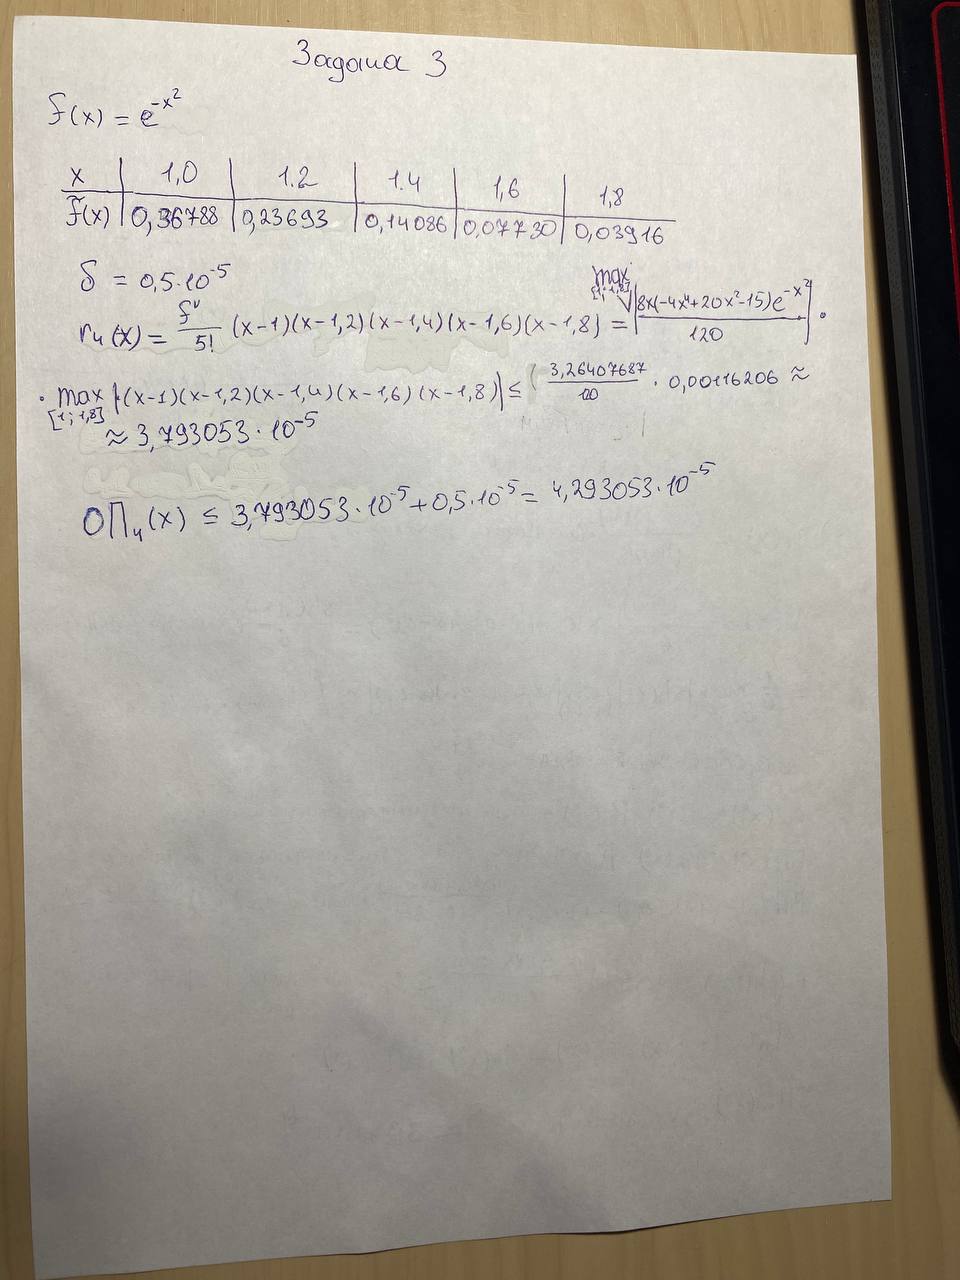 Задача 3
f(x) = e^{-x^2}
x | 1,0 | 1.2 | 1.4 | 1,6 | 1,8
f̃(x) | 0,36788 | 0,23693 | 0,14086 | 0,07730 | 0,03916
δ = 0,5·10^{-5}
r_4(x) = \frac{f^V}{5!} (x-1)(x-1,2)(x-1,4)(x-1,6)(x-1,8) = max_{[1;1,8]} |\frac{8x(-4x^4+20x^2-15)e^{-x^2}}{120}| ·
· max_{[1;1,8]} |(x-1)(x-1,2)(x-1,4)(x-1,6)(x-1,8)| ≤ \frac{3,26407687}{120} · 0,00116206 ≈
≈ 3,793053·10^{-5}
ОП_4(x) ≤ 3,793053·10^{-5}+0,5·10^{-5} = 4,293053·10^{-5}